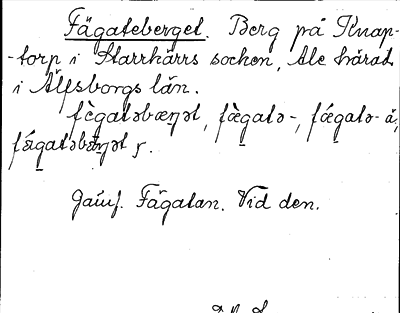 Fägateberget. Berg på Knap-
-torp i Starrkärrs socken, Ale härad
i Älfsborgs län.
fègatəbæŋət, fæ̀gatə-, fǽgatə- å,
fǽgatəbæŋət ɼ.
Jämf. Fägatan. Vid den.